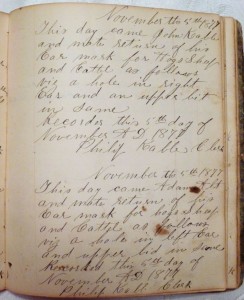 November the 5th 1877
This day came John
and make return of his
Ear mark for Hogs Sheep
and Cattle as follows
viz a hole in right
Ear and an upper bit
in same
Recorded this 5th day of
November A D 1877
Philip Clerk
November the 5th 1877
This day came Adam
and make return of his
Ear mark for hogs sheep
and Cattle as follows
viz a hole in left Ear
and upper bit in same
Recorded this 5th day of
November A D 1877
Philip Clerk